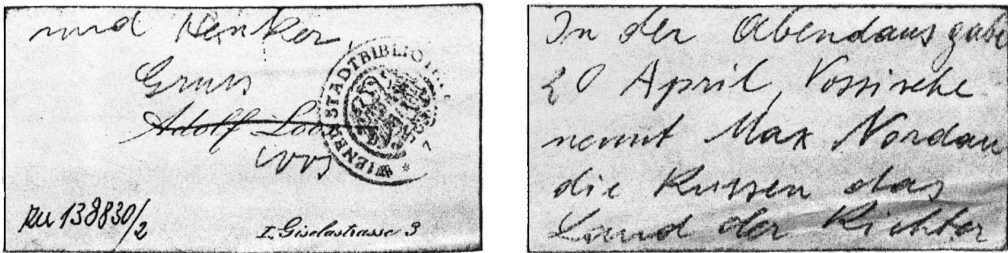 und Henker
Gruss
Adolf Loos
Loos
WIENER STADTBIBLIOT
zu 138830/2
I. Giselastrasse 3
In der Abendausgabe
20 April, Vossische
nennt Max Nordau
die Russen das
Land der Richter